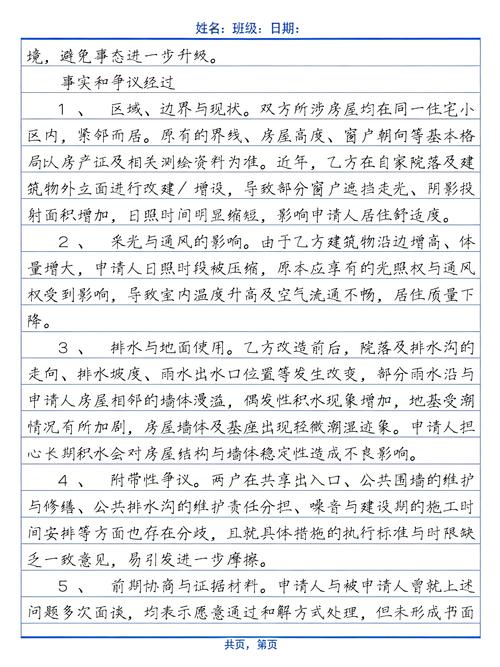 姓名：班级：日期：
境，避免事态进一步升级。
事实和争议经过
1、 区域、边界与现状。双方所涉房屋均在同一住宅小
区内，紧邻而居。原有的界线、房屋高度、窗户朝向等基本格
局以房产证及相关测绘资料为准。近年，乙方在自家院落及建
筑物外立面进行改建/增设，导致部分窗户遮挡走光、阴影投
射面积增加，日照时间明显缩短，影响申请人居住舒适度。
2、 采光与通风的影响。由于乙方建筑物沿边增高、体
量增大，申请人日照时段被压缩，原本应享有的光照权与通风
权受到影响，导致室内温度升高及空气流通不畅，居住质量下
降。
3、 排水与地面使用。乙方改造前后，院落及排水沟的
走向、排水坡度、雨水出水口位置等发生改变，部分雨水沿与
申请人房屋相邻的墙体漫溢，偶发性积水现象增加，地基受潮
情况有所加剧，房屋墙体及基座出现轻微潮湿迹象。申请人担
心长期积水会对房屋结构与墙体稳定性造成不良影响。
4、 附带性争议。两户在共享出入口、公共围墙的维护
与修缮、公共排水沟的维护责任分担、噪音与建设期的施工时
间安排等方面也存在分歧，且就具体措施的执行标准与时限缺
乏一致意见，易引发进一步摩擦。
5、 前期协商与证据材料。申请人与被申请人曾就上述
问题多次面谈，均表示愿意通过和解方式处理，但未形成书面
共页，第页